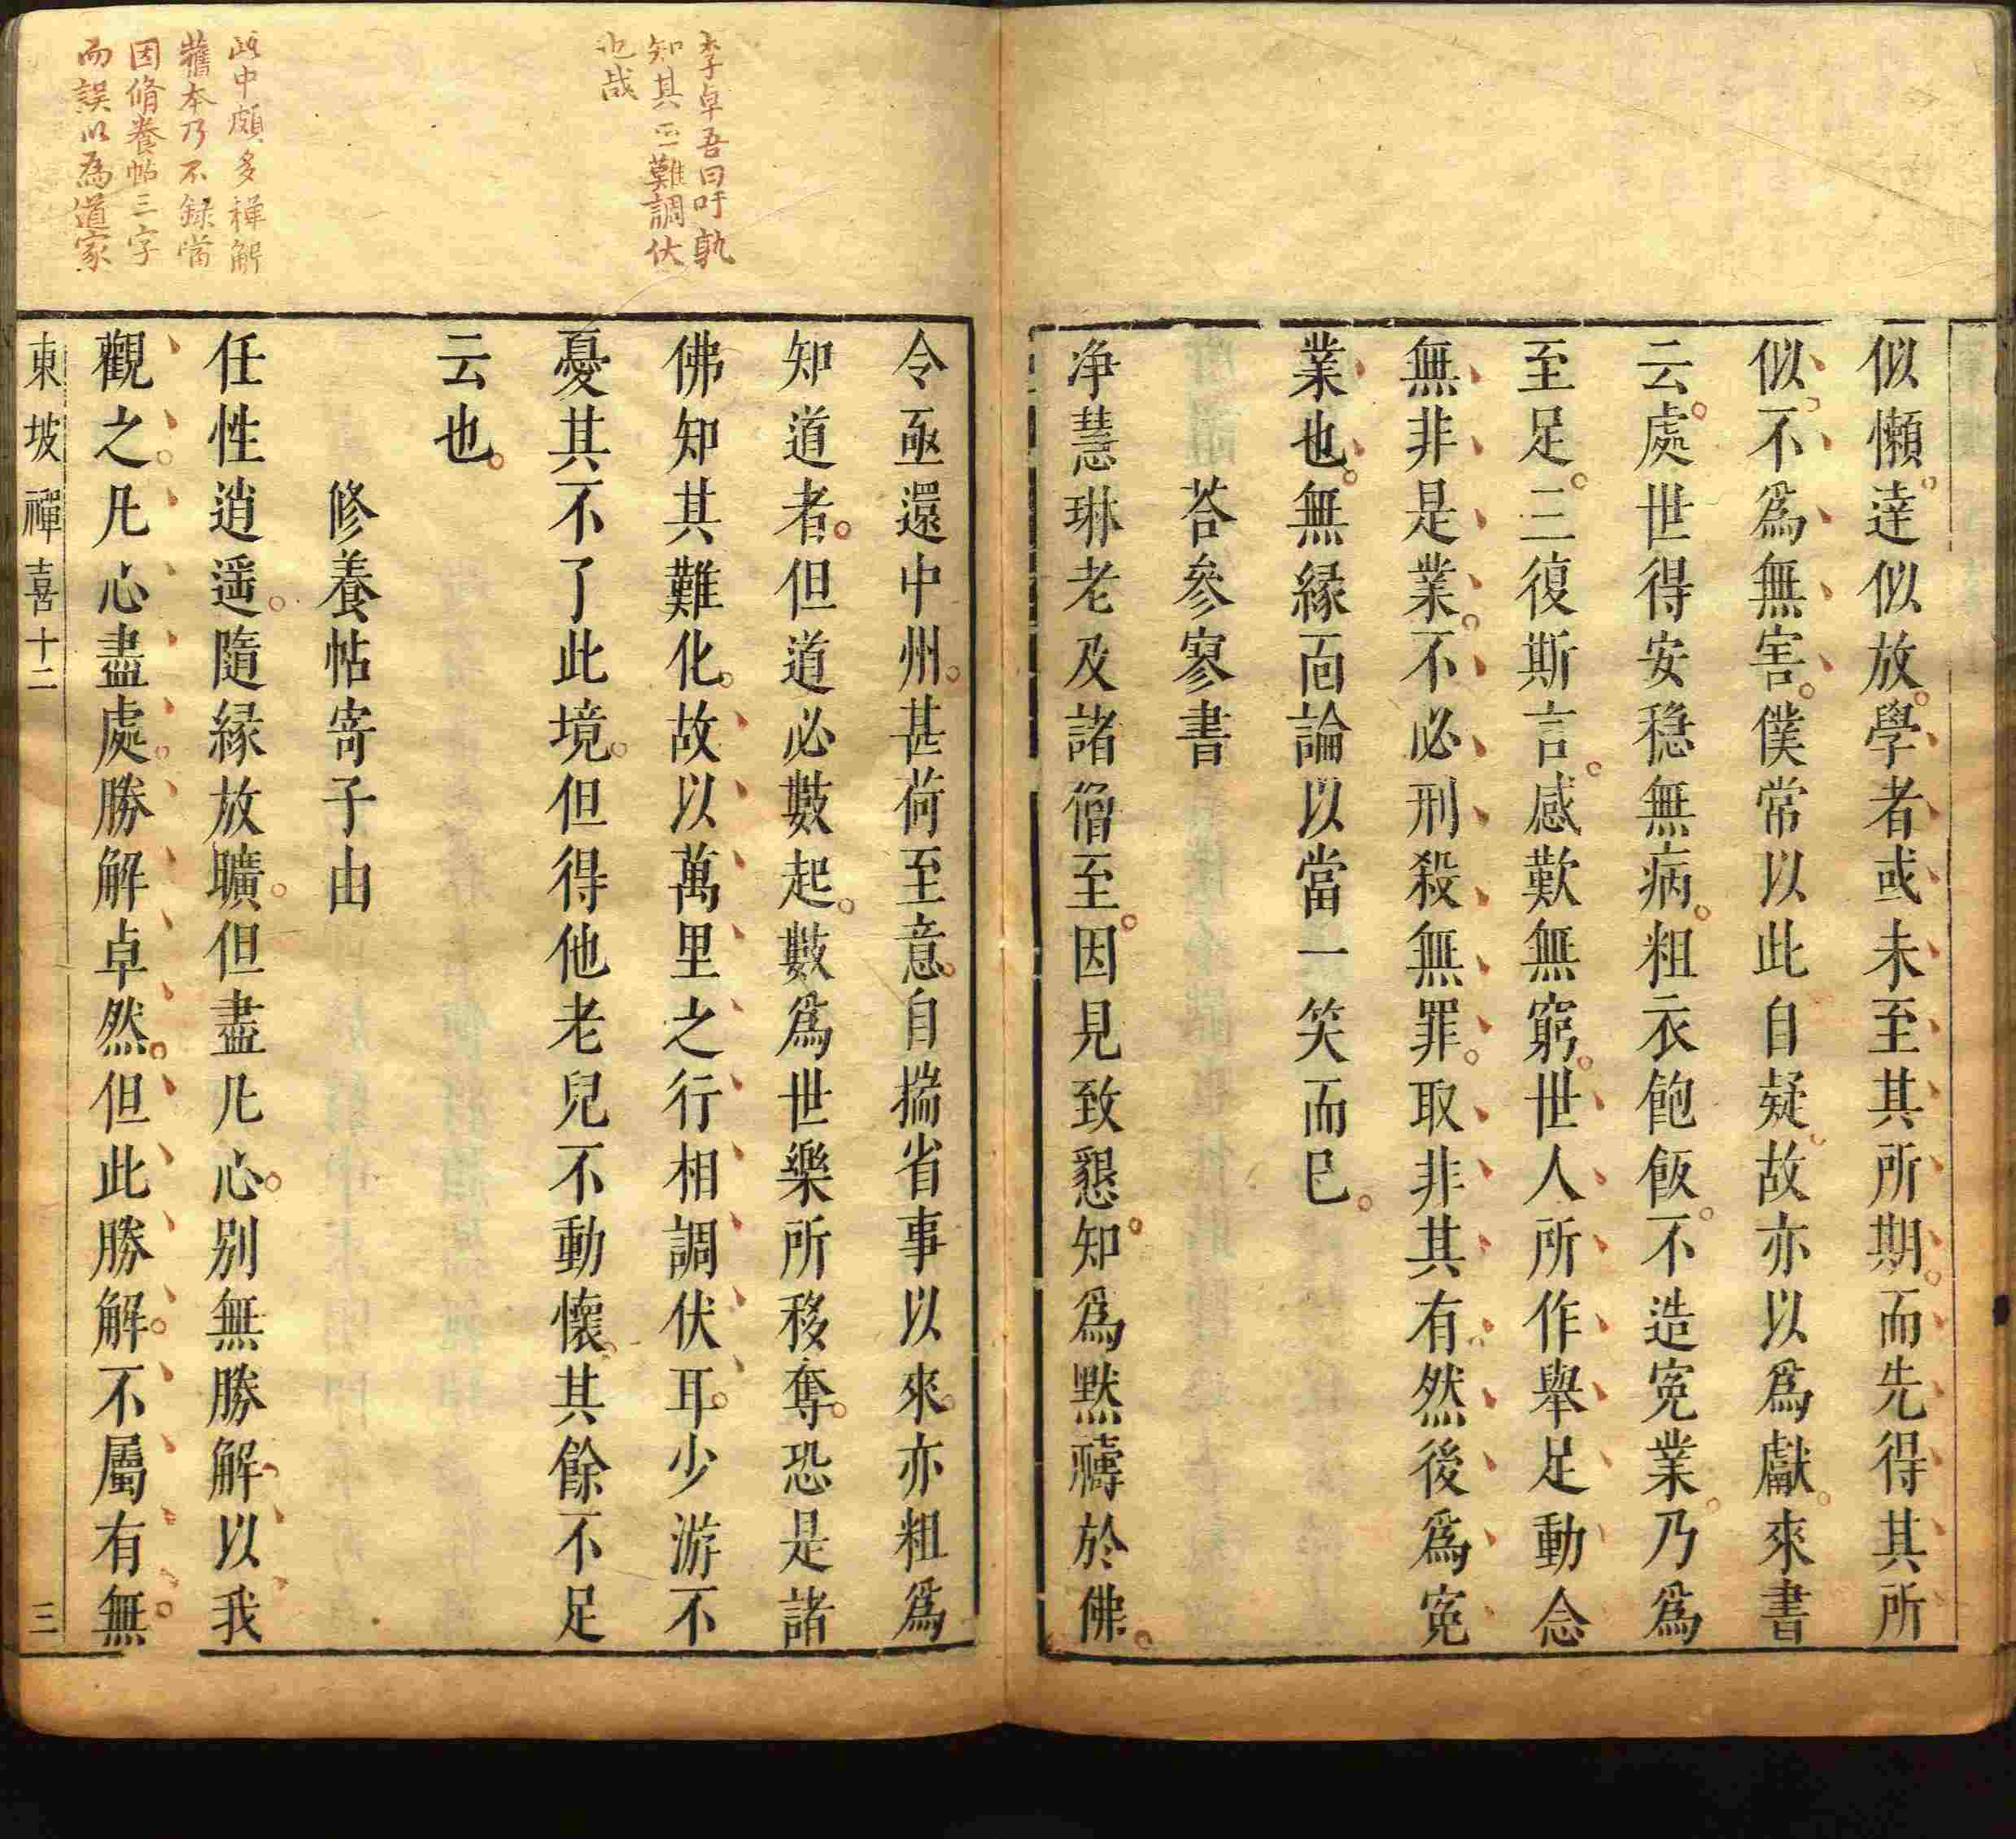 似懶達似放學者或未至其所期而先得其所
似不爲無害僕常以此自疑故亦以爲獻來書
云處世得安穩無病粗衣飽飯不造寃業乃爲
至足三復斯言感歎無窮世人所作舉足動念
無非是業不必刑殺無罪取非其有然後爲寃
業也無緣面論以當一笑而已
荅參寥書
净慧琳老及諸僧至因見致懇知爲默禱於佛
李卓吾曰吁孰
知其正難調伏
也哉
令亟還中州甚荷至意自揣省事以來亦粗爲
知道者但道必數起數爲世樂所移奪恐是諸
佛知其難化故以萬里之行相調伏耳少游不
憂其不了此境但得他老兒不動懷其餘不足
云也
修養帖寄子由
此中頗多禪解
舊本乃不録當
因脩養帖三字
而誤以為道家
任性逍遥隨緣放曠但盡凡心别無勝解以我
觀之凡心盡處勝解卓然但此勝解不屬有無
東坡禪喜十二 三